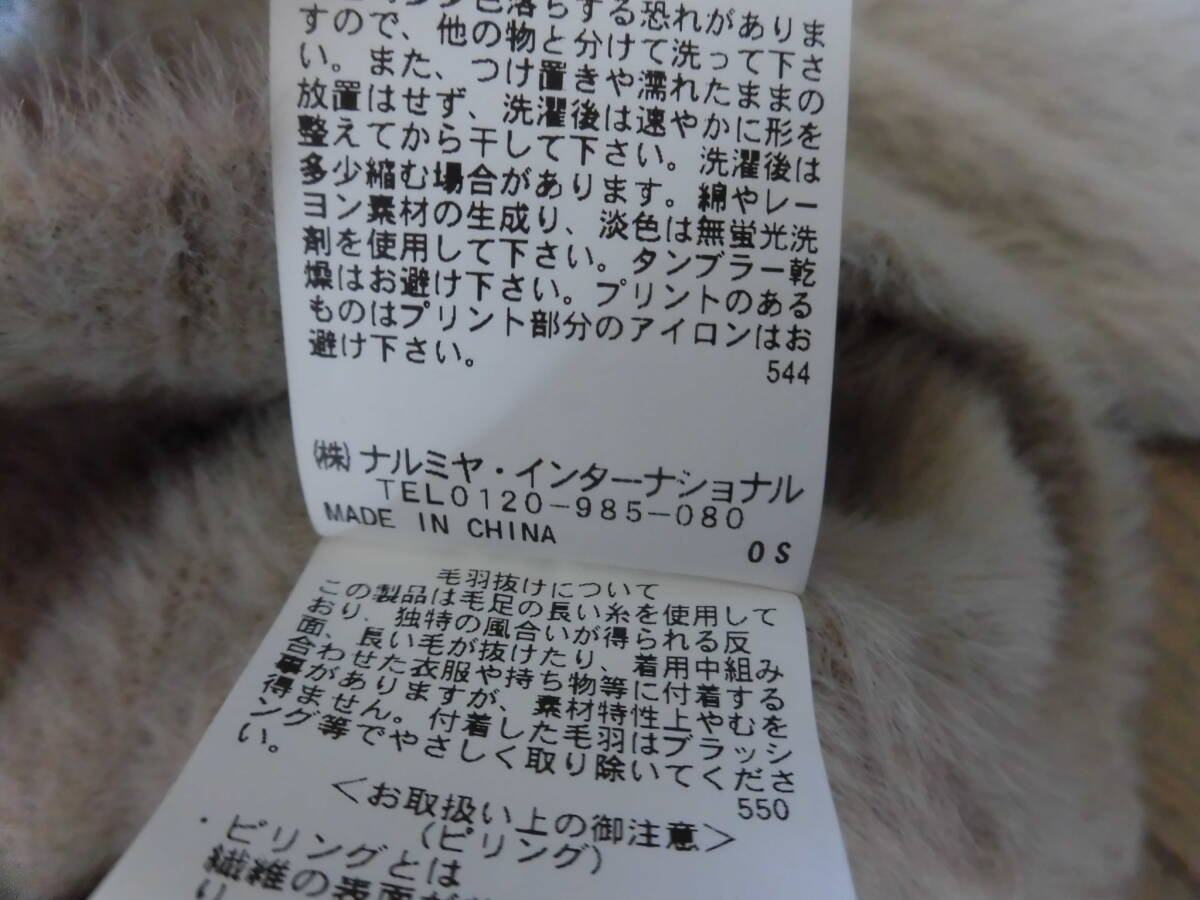 色落ちする恐れがありま
すので、他の物と分けて洗って下さ
い。また、つけ置きや濡れたままの
放置はせず、洗濯後は速やかに形を
整えてから干して下さい。洗濯後は
多少縮む場合があります。綿やレー
ヨン素材の生成り、淡色は無蛍光洗
剤を使用して下さい。タンブラー乾
燥はお避け下さい。プリントのある
ものはプリント部分のアイロンはお
避け下さい。
544
㈱ナルミヤ・インターナショナル
TEL0120-985-080
MADE IN CHINA
OS
毛羽抜けについて
この製品は毛足の長い糸を使用して
おり、独特の風合いが得られる反
面、長い毛が抜けたり、着用中組み
合わせた衣服や持ち物等に付着する
事がありますが、素材特性上やむを
得ません。付着した毛羽はブラッシ
ング等でやさしく取り除いてくださ
い。
550
<お取扱い上の御注意>
(ピリング)
・ピリングとは
繊維の表面が
り